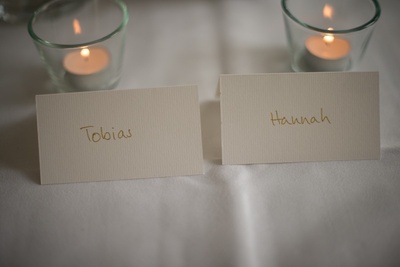 Tobias
Hannah